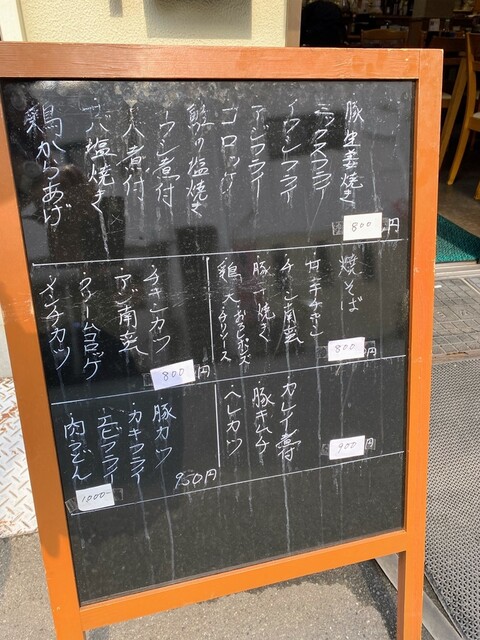 豚生姜焼き
ミックスフライ
イワシフライ
アジフライ
コロッケ
塩焼き
煮付
煮付
塩焼き
鶏からあげ
800円
焼そば
チキン南蛮
豚 焼き
鶏
800円
チキンカツ
アジ南蛮
クリームコロッケ
メンチカツ
800円
カレイ煮付
豚キムチ
ヘレカツ
900円
豚カツ
カキフライ
エビフライ
肉うどん
950円
1000-